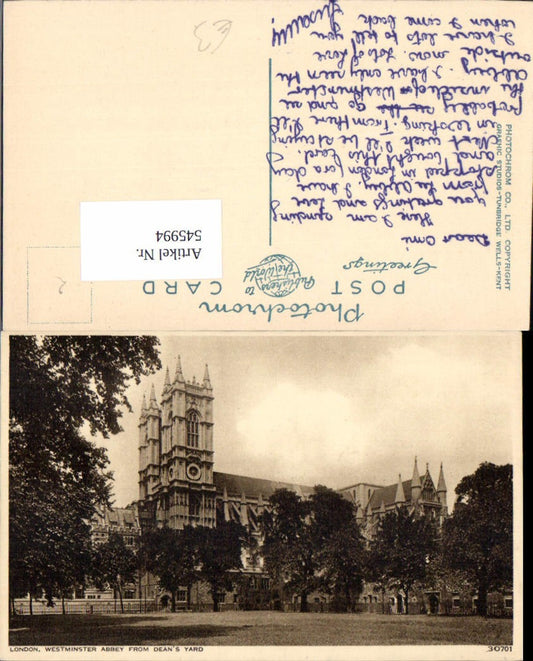 Photochrom
POST CARD
Publishers to the World
Greetings
PHOTOCHROM CO., LTD. COPYRIGHT
GRAPHIC STUDIOS-TUNBRIDGE WELLS-KENT
Artikel Nr.
545994
Dear Omi
Here I am sending
you greetings and love
from the Abbey. I have
stopped in London for a day
and bought this card.
Next week I'll be staying
in Woking. From there I'll
probably go and see
the inside of Westminster
Abbey. I have only seen the
outside now. Lots of love
I have lots to tell you
when I come back
LONDON, WESTMINSTER ABBEY FROM DEAN'S YARD
30701